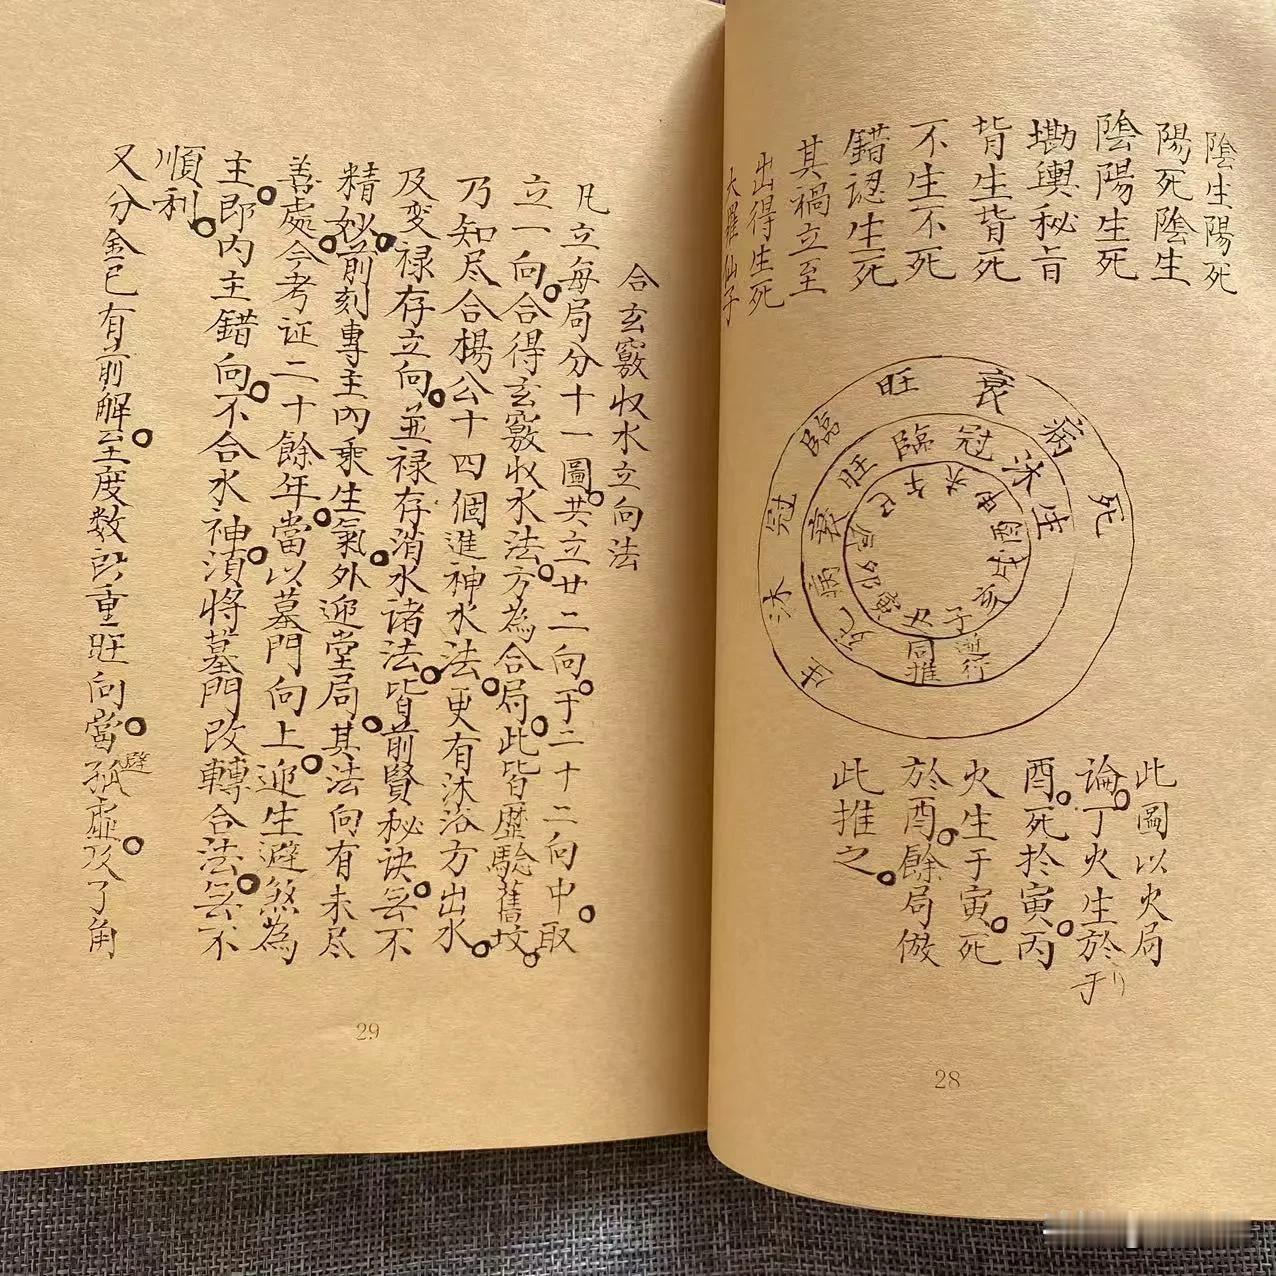 陰生陽死
陽死陰生
陰陽生死
墈輿秘旨
背生背死
不生不死
錯認生死
其禍立至
出得生死
大羅仙子
衰
旺
臨
冠
沐
生
病
死
生
沐
冠
臨
旺
衰
病
死
午
巳
辰
卯
寅
丑
子
亥
戌
酉
申
未
逆行
同推
此圖以火局
論。丁火生於
酉。死於寅。丙
火生于寅。死
於酉。餘局倣
此推之。
于
28
合玄竅收水立向法
凡立每局分十一圖。共立廿二向。于二十二向中。取
立一向。合得玄竅收水法。方為合局。此皆歷驗舊墳。
乃知尽合楊公十四個進神水法。更有沐浴方出水。
及变禄存立向。並禄存消水诸法。皆前賢秘诀。無不
精妙。前刻專主內乘生氣。外迎堂局。其法向有未尽
善處。今考证二十餘年。當以墓門向上。迎生避煞為
主。即內主錯向。不合水神。須將墓門改轉合法。無不
順利。
又分金已有前解。至度數以重旺向當。避孤虛。及了角
29